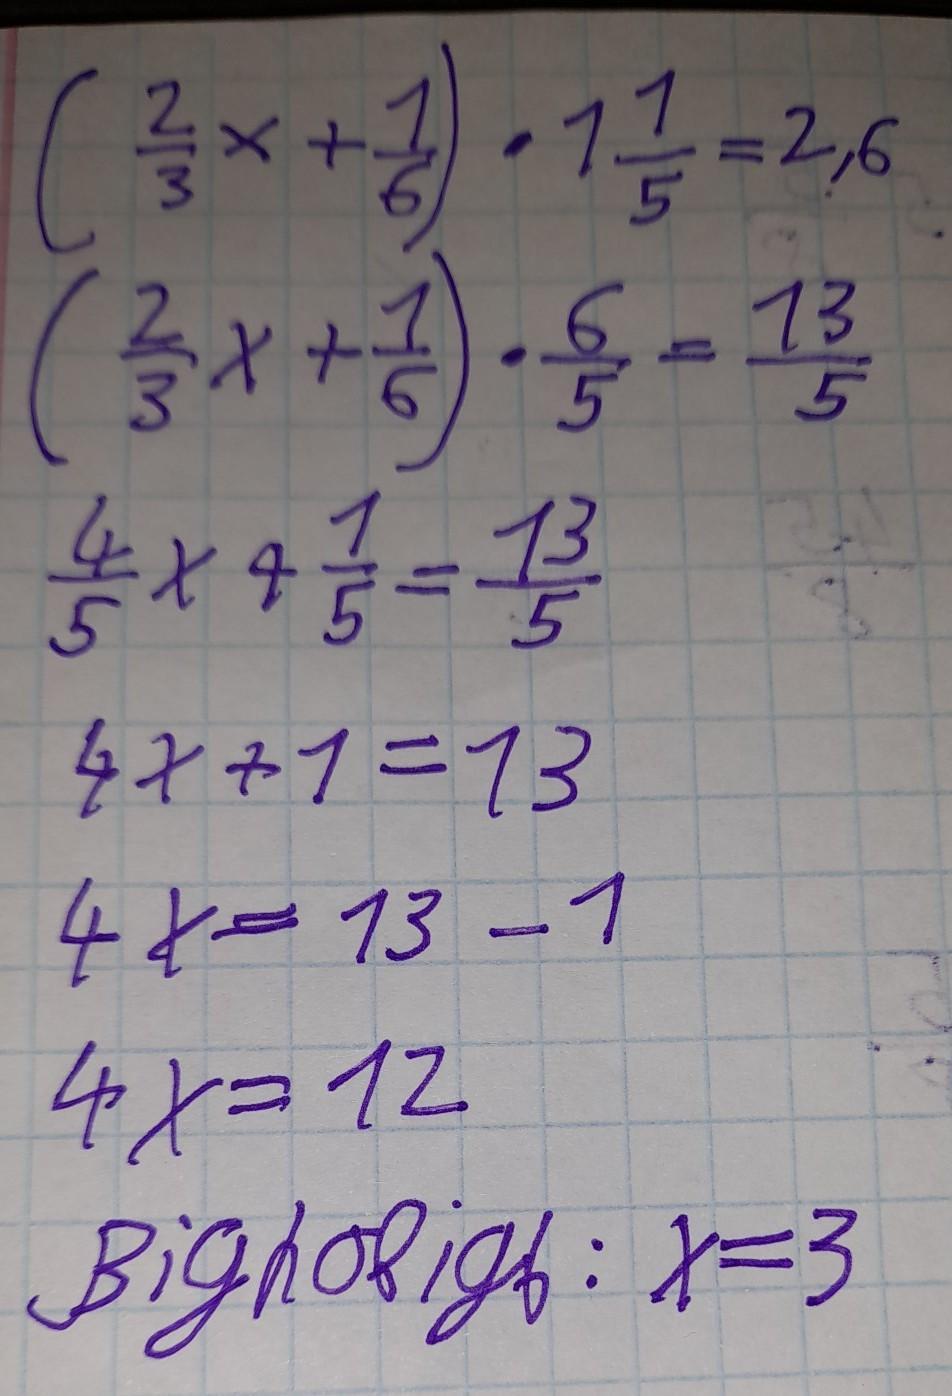 (2/3 x + 1/6) · 1 1/5 = 2,6
(2/3 x + 1/6) · 6/5 = 13/5
4/5 x + 1/5 = 13/5
4x + 1 = 13
4x = 13 - 1
4x = 12
Відповідь: x = 3